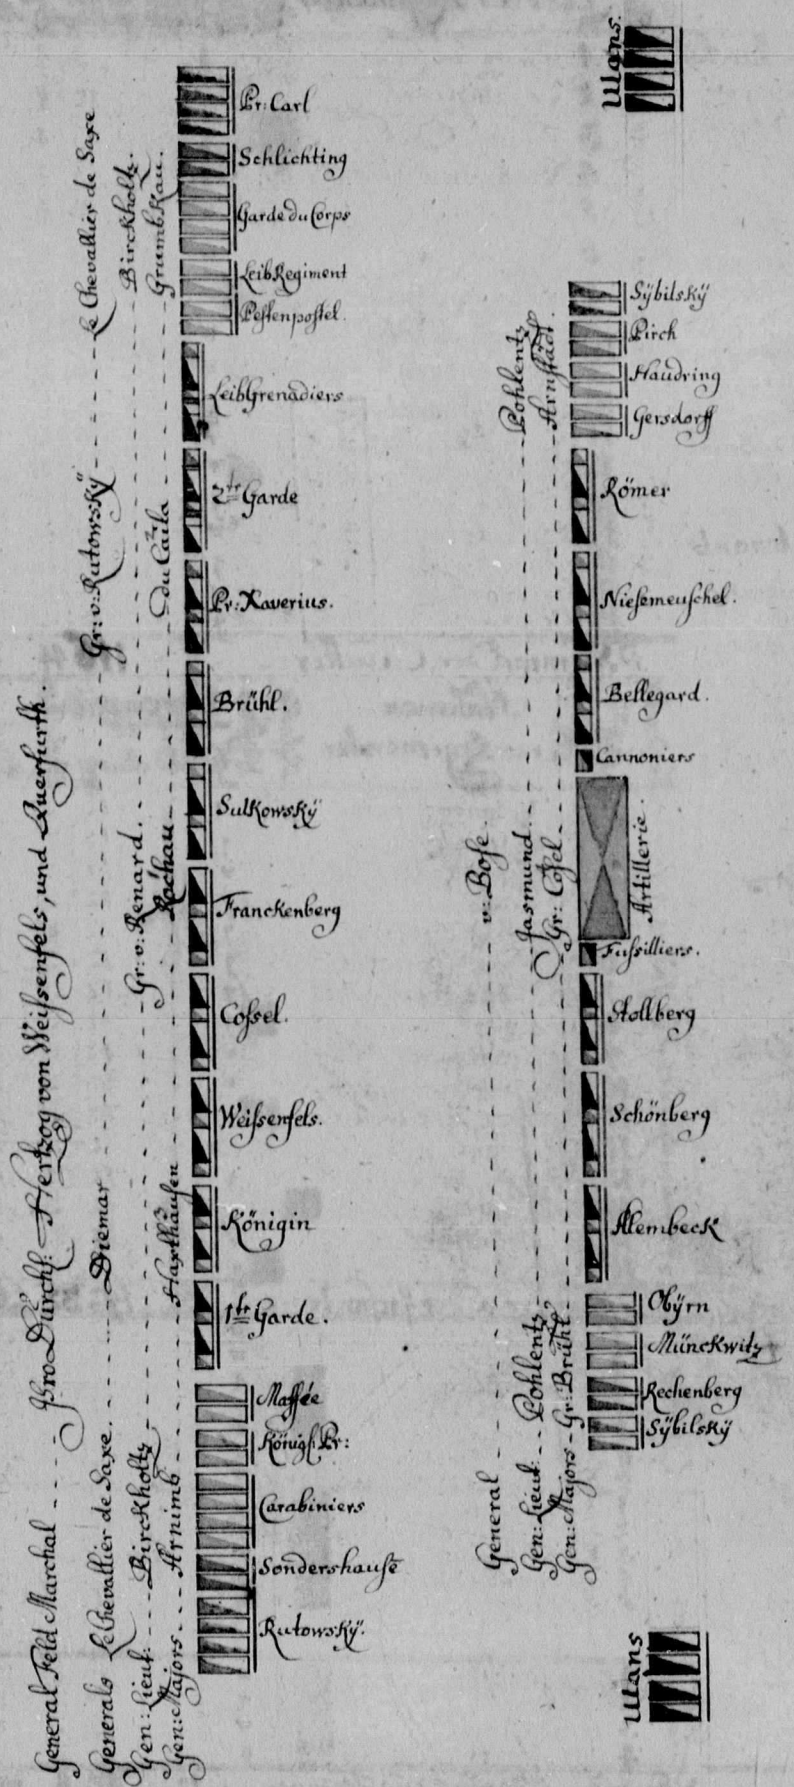 General Feld Marchal - - - - Jhro Dürchl: Hertzog von Weissenfels, und Querfurth.
Generals Le Chevallier de Saxe. - - - Diemar - - - Gr: v: Rutowskÿ - - - Le Chevallier de Saxe
Gen: Lieut: - - - Birckholtz - - - Gr: v: Renard. - - - Birckholtz.
Gen: Majors - - - Arnimb - - - Haxthausen - - - Rochau - - - du Caila - - - Grumbkau.
Pr: Carl
Schlichting
Garde du Corps
Leib Regiment
Pestenpostel.
Leib Grenadiers
2te Garde
Pr: Xaverius.
Brühl.
Sulkowskÿ
Franckenberg
Cossel.
Weissenfels.
Königin
1te Garde.
Maffée
Königl: Pr:
Carabiniers
Sondershausē
Rutowskÿ.
Ulans.
General - - - v: Bose - - -
Gen: Lieut: - - Pohlentz - - - Jasmund - - - Pohlentz
Gen: Majors - Gr: Brühl - - - Gr: Cosel - - - Arnstädt.
Sÿbilskÿ
Pirch
Haudring
Gersdorff
Römer
Niesemeuschel.
Bellegard.
Cannoniers
Artillerie.
Fussilliers.
Stollberg
Schönberg
Alembeck
Obÿrn
Münckwitz
Rechenberg
Sÿbilskÿ
Ulans